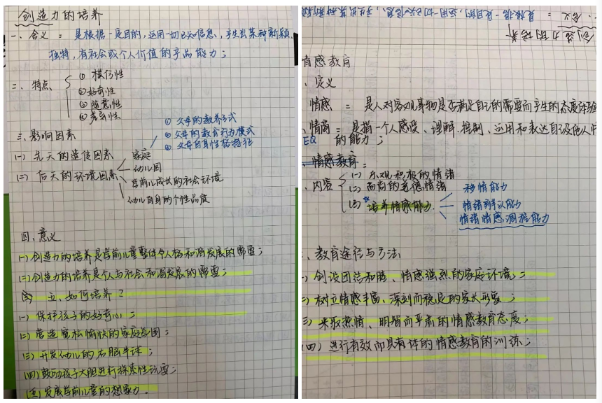 创造力的培养
一、含义:是根据一定目的,运用一切已知信息,产生出某种新颖、
独特,有社会或个人价值的产品能力;
二、特点
① 模仿性
② 好奇性
三、影响因素
① 父母的教养方式
② 父母的教育行为模式
(一) 先天的遗传因素
家庭
幼儿园
(二) 后天的环境因素
幼儿自身的个性品质
四、意义
(一) 创造力的培养是学前儿童整体令人格和谐发展的需要;
(二) 创造力的培养是个人与社会和谐发展的需要;
五、如何培养?
(一) 保护孩子的好奇心;
(二) 营造宽松愉快的家庭氛围;
(三) 开发幼儿的右脑半球;
(四) 鼓励孩子大胆进行探索性玩耍;
(五) 发展学前儿童的想象力.
情感教育
定义
情感 = 是人对客观事物是否满足自己的需要而产生的态度体验
情商 = 是指一个人感受、理解、控制、运用和表达自己及他人
EQ 的能力;
情感教育:
内容
(一) 乐观积极的情绪
(二) 道德情绪
(三) 培养情感能力
移情能力
情绪辨认能力
情绪情感调控能力
教育途径与方法
创设团结和睦、情感强烈的家庭环境;
树立情感丰富、深刻的父母形象;
采取热情、明朗的情感教育态度;
(四) 进行有效而具有体的情感教育的训练;